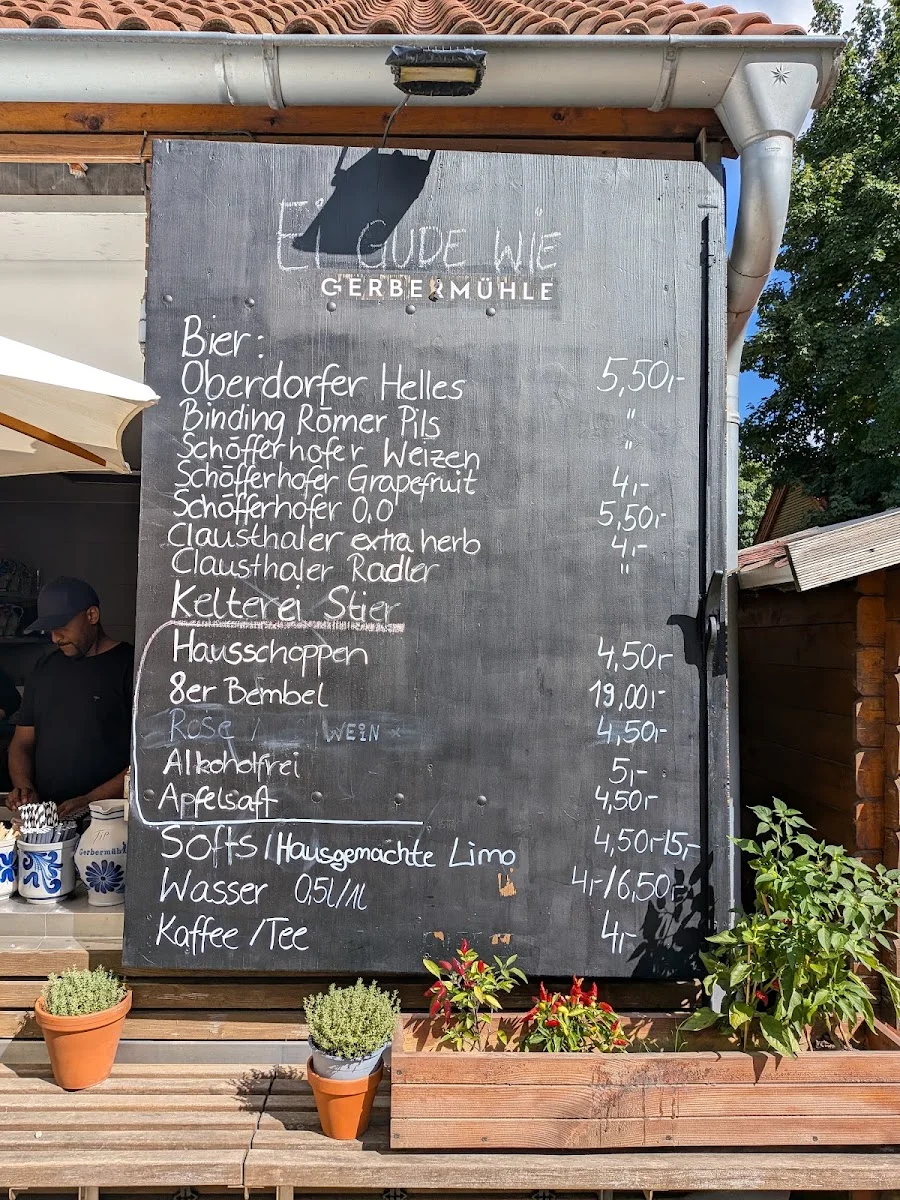 Ei GUDE WiE
GERBERMÜHLE
Bier:
Oberdorfer Helles 5,50,-
Binding Römer Pils "
Schöfferhofer Weizen "
Schöfferhofer Grapefruit 4,-
Schöfferhofer 0,0 5,50,-
Clausthaler extra herb 4,-
Clausthaler Radler "
Kelterei Stier
Hausschoppen 4,50,-
8er Bembel 19,00,-
Rose / WEiN 4,50,-
Alkoholfrei 5,-
Apfelsaft 4,50,-
Softs / Hausgemachte Limo 4,50,-/5,-
Wasser 0,5l/1l 4,-/6,50,-
Kaffee / Tee 4,-
Gerbermühle